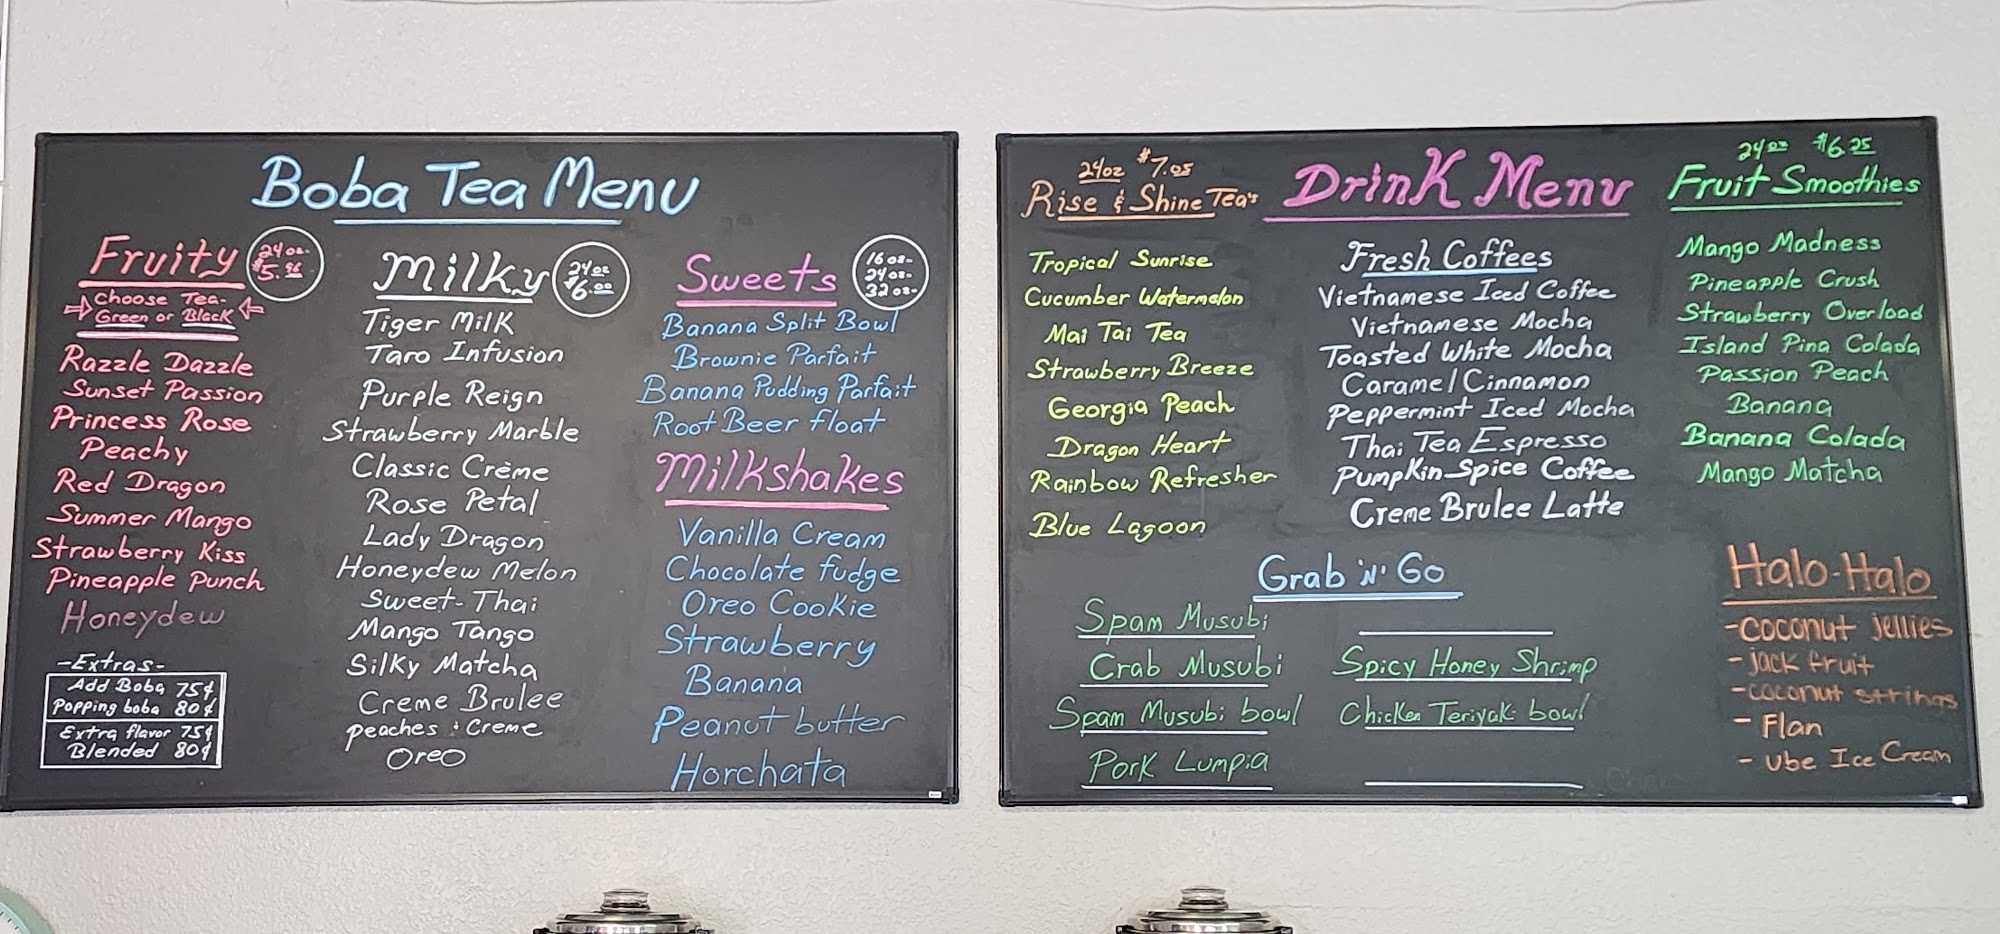 Boba Tea Menu
Fruity
24 oz-
$5.96
Choose Tea-
Green or Black
Razzle Dazzle
Sunset Passion
Princess Rose
Peachy
Red Dragon
Summer Mango
Strawberry Kiss
Pineapple Punch
Honeydew
-Extras-
Add Boba 75¢
Popping boba 80¢
Extra flavor 75¢
Blended 80¢
Milky
24 oz
$6.00
Tiger Milk
Taro Infusion
Purple Reign
Strawberry Marble
Classic Crème
Rose Petal
Lady Dragon
Honeydew Melon
Sweet-Thai
Mango Tango
Silky Matcha
Creme Brulee
peaches & Creme
Oreo
Sweets
16 oz-
24 oz-
32 oz-
Banana Split Bowl
Brownie Parfait
Banana Pudding Parfait
Root Beer float
Milkshakes
Vanilla Cream
Chocolate fudge
Oreo Cookie
Strawberry
Banana
Peanut butter
Horchata
24oz $7.05
Rise & Shine Tea's
Tropical Sunrise
Cucumber Watermelon
Mai Tai Tea
Strawberry Breeze
Georgia Peach
Dragon Heart
Rainbow Refresher
Blue Lagoon
Drink Menu
Fresh Coffees
Vietnamese Iced Coffee
Vietnamese Mocha
Toasted White Mocha
Caramel Cinnamon
Peppermint Iced Mocha
Thai Tea Espresso
Pumpkin Spice Coffee
Creme Brulee Latte
24oz $6.25
Fruit Smoothies
Mango Madness
Pineapple Crush
Strawberry Overload
Island Pina Colada
Passion Peach
Banana
Banana Colada
Mango Matcha
Grab 'N' Go
Spam Musubi
Crab Musubi
Spam Musubi bowl
Pork Lumpia
Spicy Honey Shrimp
Chicken Teriyaki bowl
Halo-Halo
-coconut jellies
- jack fruit
- coconut strings
- Flan
- ube Ice Cream